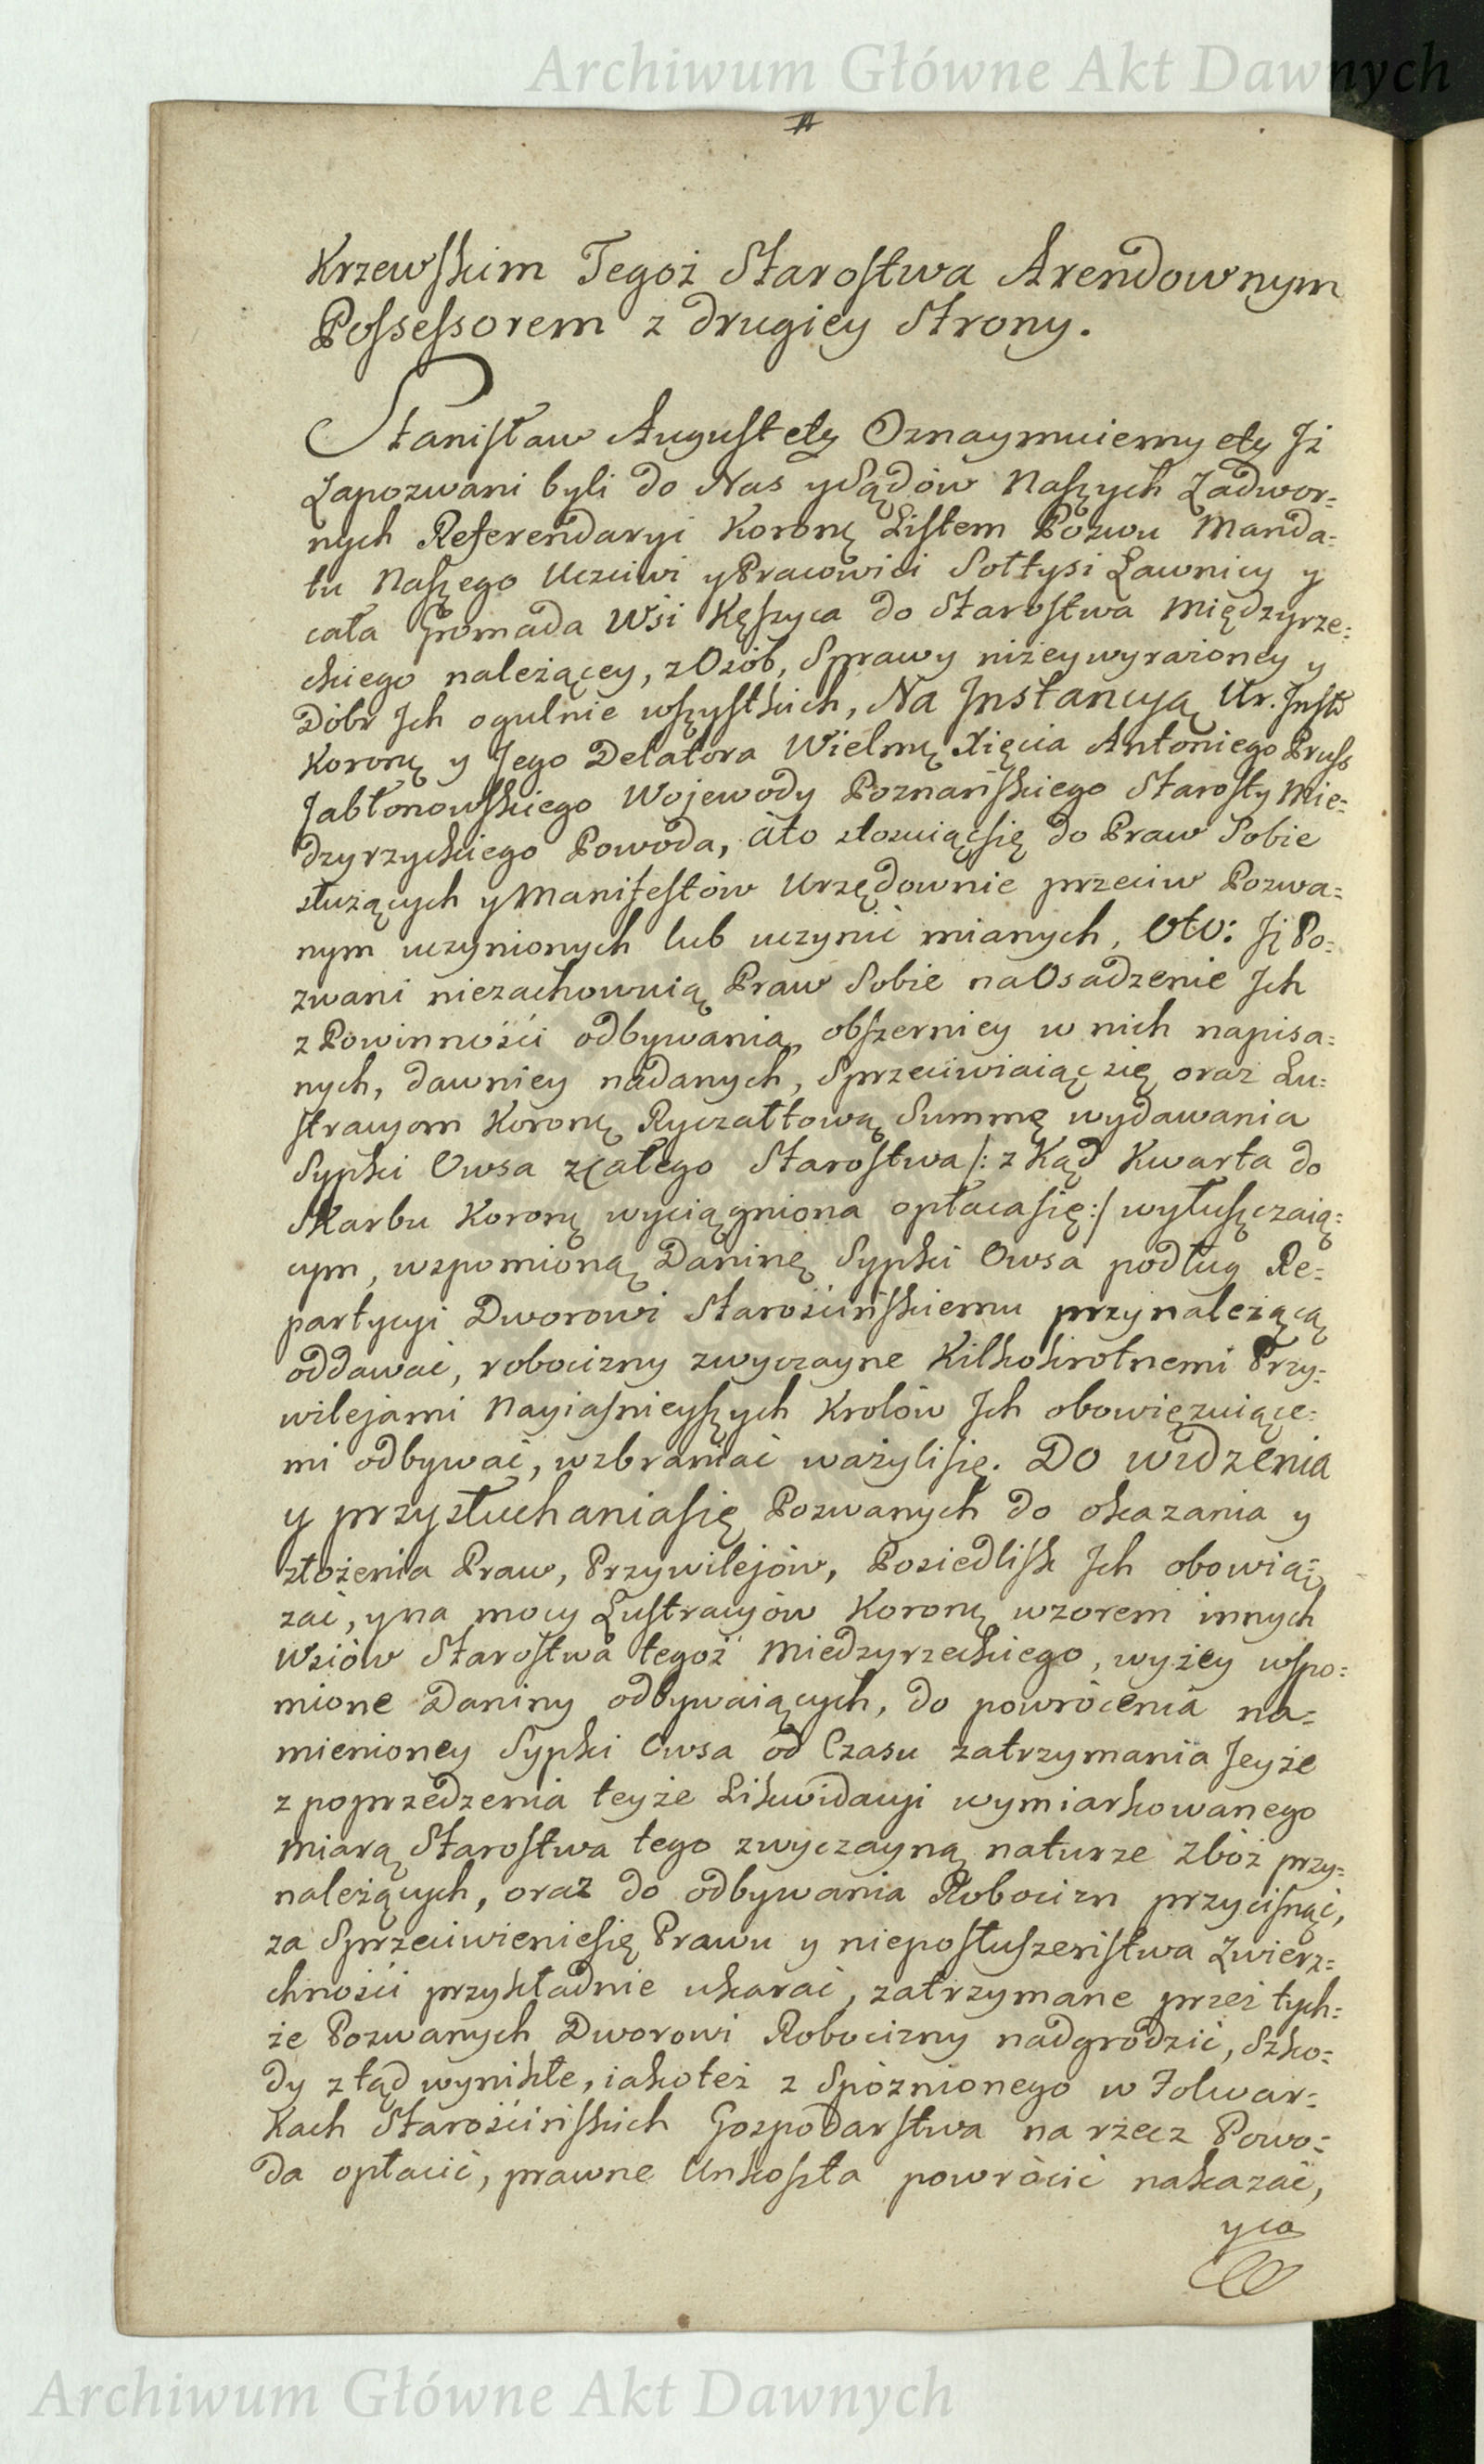 Archiwum Główne Akt Dawnych
Krzewskim Tegoż Starostwa Arendownym
Possessorem z drugiey Strony.
Stanisław August etc Oznaymuiemy etc Iż
Zapozwani byli do Nas y Sądów Naszych Zadwor=
nych Referendaryi Koronę Listem Pozwu Manda=
tu Naszego Uczciwi y Pracowici Sołtysi Ławnicy y
cała Gromada Wsi Kęszyca do Starostwa Międzyrze=
ckiego należącey, z Osób, Sprawy niżey wyrażoney y
Dóbr Ich ogulnie wszystkich, Na Instancyą Ur. Inst
Koronę y Jego Delatora Wielmę Xięcia Antoniego Pruss
Jabłonowskiego Wojewody Poznańskiego Starosty Mie=
dzyrzyckiego Powoda, ato stosuiąc się do Praw Sobie
służących y Manifestów Urzędownie przeciw Pozwa=
nym uczynionych lub uczynić mianych, Oto: Iż Po=
zwani niezachowuią Praw Sobie na Osadzenie Ich
z Powinności odbywania, obszerniey w nich napisa=
nych, dawniey nadanych, Sprzeciwiaiąc się oraz Lu=
stracyom Koronę Ryczałtową Summę wydawania
Sypki Owsa z całego Starostwa /: z Kąd Kwarta do
Skarbu Koronę wyciągniona opłaca się :/ wyłuszczaią=
cym, wzpomioną Daninę Sypki Owsa podług Re=
partycyi Dworowi Starościńskiemu przynależącą
oddawać, robocizny zwyczayne Kilkokrotnemi Przy=
wilejami Nayiasnieyszych Krolów Ich obowięzuiące=
mi odbywać, wzbraniać ważyli się. Do widzenia
y przysłuchania się Pozwanych do okazania y
złożenia Praw, Przywilejów, Posiedlisk Ich obowią=
zać, y na mocy Lustracyów Koronę wzorem innych
Wsiów Starostwa tegoż Miedzyrzeckiego, wyżey wspo=
mione Daniny odbywaiących, do powrócenia na=
mienioney Sypki Owsa od Czasu zatrzymania Jeyże
z poprzedzenia teyże Likwidacyi wymiarkowanego
miarą Starostwa tego zwyczayną naturze zbóż przy=
należących, oraz do odbywania Robocizn przycisnąć,
za Sprzeciwienie się Prawu y nieposłuszeństwa Zwierz=
chności przykładnie ukarać, zatrzymane przez tych=
że Pozwanych Dworowi Robocizny nadgrodzić, Szko=
dy ztąd wynikłe, iakoteż z Spóznionego w Folwar=
kach Starościńskich Gospodarstwa na rzecz Powo=
da opłacić, prawne Unkoszta powrócić nakazać,
y co
Archiwum Główne Akt Dawnych